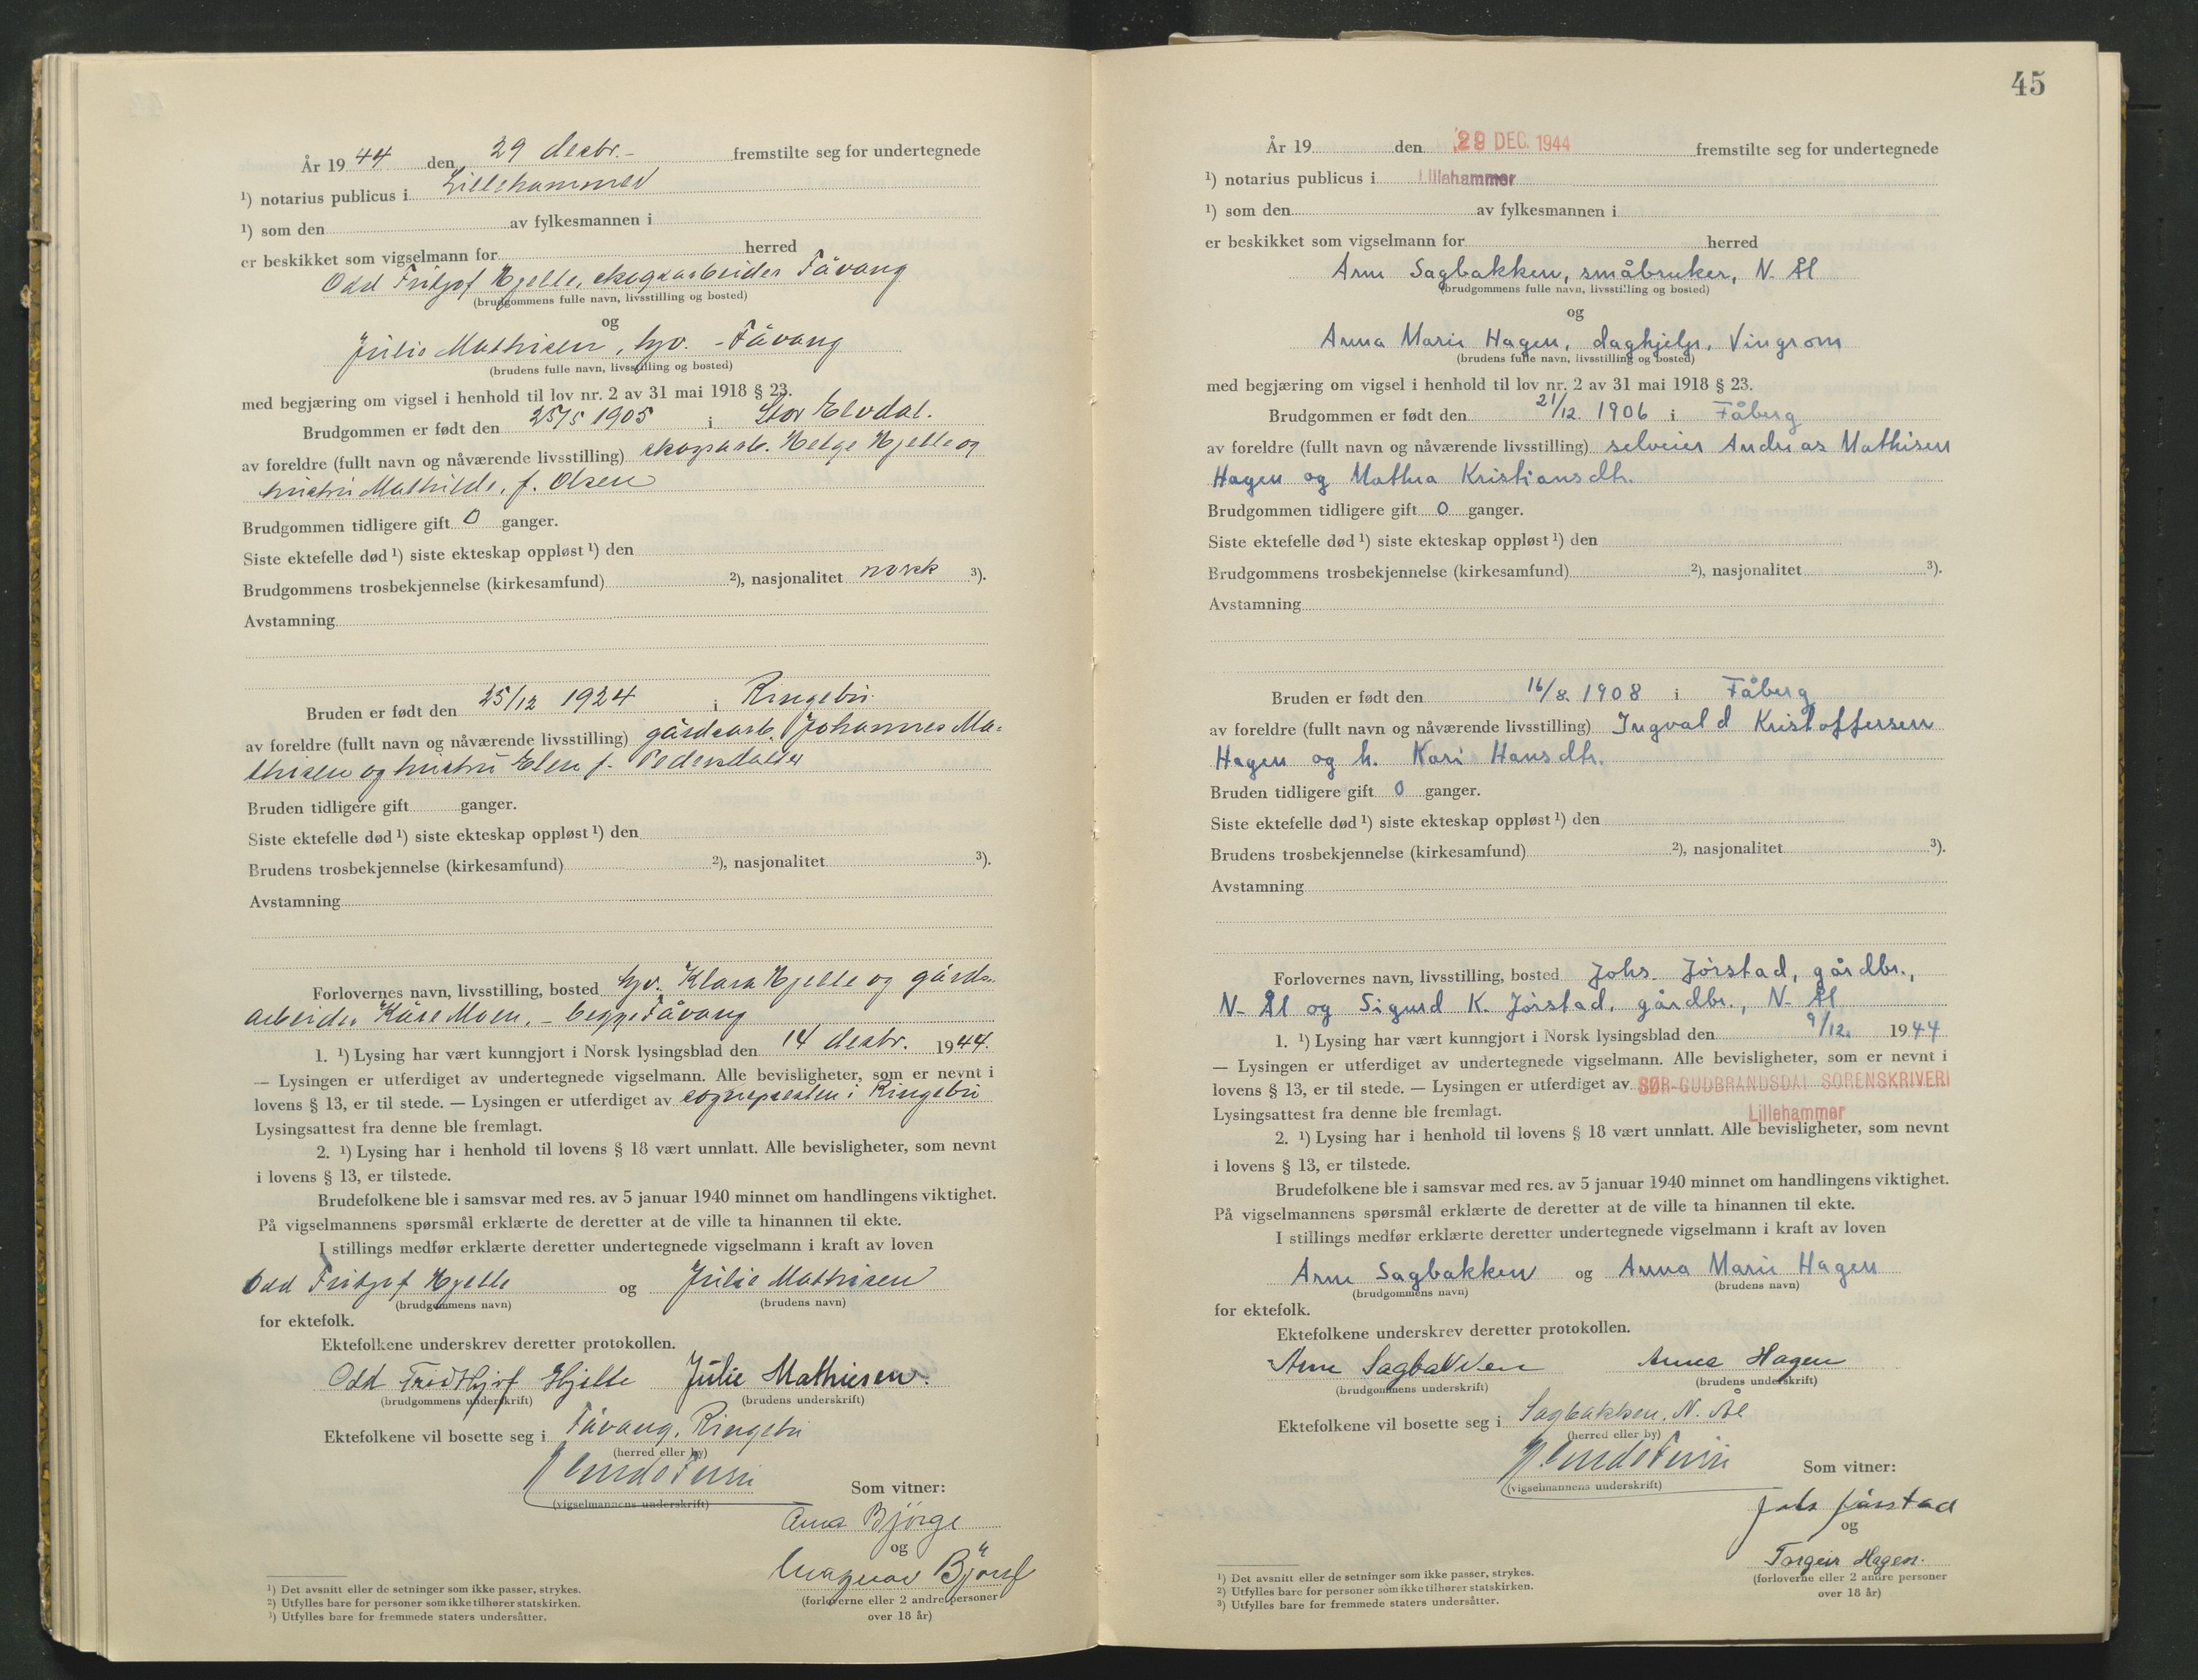 År 19 44 den 29 decbr.- fremstilte seg for undertegnede
¹) notarius publicus i Lillehammer
¹) som den av fylkesmannen i
er beskikket som vigselmann for herred
Odd Fritjof Hjelle, skogsarbeider Fåvang
(brudgommens fulle navn, livsstilling og bosted)
og
Julie Mathisen, hjv. - Fåvang
(brudens fulle navn, livsstilling og bosted)
med begjæring om vigsel i henhold til lov nr. 2 av 31 mai 1918 § 23.
Brudgommen er født den 25/5 1905 i Stor Elvdal.
av foreldre (fullt navn og nåværende livsstilling) skogsarb. Helge Hjelle og
hustru Mathilde, f. Olsen
Brudgommen tidligere gift 0 ganger.
Siste ektefelle død ¹) siste ekteskap oppløst ¹) den
Brudgommens trosbekjennelse (kirkesamfund) ²), nasjonalitet norsk ³).
Avstamning
Bruden er født den 25/12 1924 i Ringebu.
av foreldre (fullt navn og nåværende livsstilling) gårdsarb. Johannes Ma-
thisen og hustru Elen f. Pedersdatter
Bruden tidligere gift ganger.
Siste ektefelle død ¹) siste ekteskap oppløst ¹) den
Brudens trosbekjennelse (kirkesamfund) ²), nasjonalitet ³).
Avstamning
Forlovernes navn, livsstilling, bosted hjv. Klara Hjelle og gårds-
arbeider Kåre Moen, - begge Fåvang
1. ¹) Lysing har vært kunngjort i Norsk lysingsblad den 14 decbr. 1944.
— Lysingen er utferdiget av undertegnede vigselmann. Alle bevisligheter, som er nevnt i
lovens § 13, er til stede. — Lysingen er utferdiget av sognepresten i Ringebu
Lysingsattest fra denne ble fremlagt.
2. ¹) Lysing har i henhold til lovens § 18 vært unnlatt. Alle bevisligheter, som nevnt
i lovens § 13, er tilstede.
Brudefolkene ble i samsvar med res. av 5 januar 1940 minnet om handlingens viktighet.
På vigselmannens spørsmål erklærte de deretter at de ville ta hinannen til ekte.
I stillings medfør erklærte deretter undertegnede vigselmann i kraft av loven
Odd Fritjof Hjelle og Julie Mathisen
(brudgommens navn) (brudens navn)
for ektefolk.
Ektefolkene underskrev deretter protokollen.
Odd Fridthjof Hjelle Julie Mathiesen.
(brudgommens underskrift) (brudens underskrift)
Ektefolkene vil bosette seg i Fåvang, Ringebu
(herred eller by)
(vigselmannens underskrift)
Som vitner:
Bjørge
og
(forloverne eller 2 andre personer
over 18 år)
¹) Det avsnitt eller de setninger som ikke passer, strykes.
²) Utfylles bare for personer som ikke tilhører statskirken.
³) Utfylles bare for fremmede staters undersåtter.
45
År 19 den 29 DEC. 1944 fremstilte seg for undertegnede
¹) notarius publicus i Lillehammer
¹) som den av fylkesmannen i
er beskikket som vigselmann for herred
Arne Sagbakken, småbruker, N. Ål
(brudgommens fulle navn, livsstilling og bosted)
og
Anna Marie Hagen, daghjelp, Vingrom
(brudens fulle navn, livsstilling og bosted)
med begjæring om vigsel i henhold til lov nr. 2 av 31 mai 1918 § 23.
Brudgommen er født den 21/12. 1906 i Fåberg
av foreldre (fullt navn og nåværende livsstilling) selveier Andreas Mathisen
Hagen og Mathea Kristiansdtr.
Brudgommen tidligere gift 0 ganger.
Siste ektefelle død ¹) siste ekteskap oppløst ¹) den
Brudgommens trosbekjennelse (kirkesamfund) ²), nasjonalitet ³).
Avstamning
Bruden er født den 16/8. 1908 i Fåberg
av foreldre (fullt navn og nåværende livsstilling) Ingvald Kristoffersen
Hagen og h. Kari Hansdtr.
Bruden tidligere gift 0 ganger.
Siste ektefelle død ¹) siste ekteskap oppløst ¹) den
Brudens trosbekjennelse (kirkesamfund) ²), nasjonalitet ³).
Avstamning
Forlovernes navn, livsstilling, bosted Johs. Jørstad, gårdbr.,
N- Ål og Sigurd K. Jørstad, gårdbr., N- Ål
1. ¹) Lysing har vært kunngjort i Norsk lysingsblad den 9/12. 1944
— Lysingen er utferdiget av undertegnede vigselmann. Alle bevisligheter, som er nevnt i
lovens § 13, er til stede. — Lysingen er utferdiget av SØR-GUDBRANDSDAL SORENSKRIVERI
Lysingsattest fra denne ble fremlagt. Lillehammer
2. ¹) Lysing har i henhold til lovens § 18 vært unnlatt. Alle bevisligheter, som nevnt
i lovens § 13, er tilstede.
Brudefolkene ble i samsvar med res. av 5 januar 1940 minnet om handlingens viktighet.
På vigselmannens spørsmål erklærte de deretter at de ville ta hinannen til ekte.
I stillings medfør erklærte deretter undertegnede vigselmann i kraft av loven
Arne Sagbakken og Anna Marie Hagen
(brudgommens navn) (brudens navn)
for ektefolk.
Ektefolkene underskrev deretter protokollen.
Arne Sagbakken Anna Hagen
(brudgommens underskrift) (brudens underskrift)
Ektefolkene vil bosette seg i Sagbakken, N. Ål
(herred eller by)
(vigselmannens underskrift)
Som vitner:
Johs Jørstad
og
Torgeir Hagen.
(forloverne eller 2 andre personer
over 18 år)
¹) Det avsnitt eller de setninger som ikke passer, strykes.
²) Utfylles bare for personer som ikke tilhører statskirken.
³) Utfylles bare for fremmede staters undersåtter.